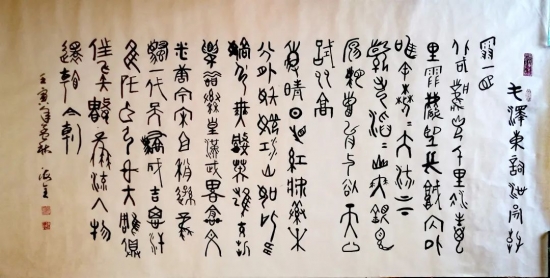 毛澤東詞沁園春
北國風光千里冰封萬
里雪飄望長城內外
惟余莽莽大河上下
頓失滔滔山舞銀蛇
原馳蠟象欲與天公
試比高
須晴日看紅妝素裹
分外妖嬈江山如此多
嬌引無數英雄競折
腰惜秦皇漢武略輸文
采唐宗宋祖稍遜風
騷一代天驕成吉思汗
只識彎弓射大雕俱
往矣數風流人物
還看今朝
壬寅年秋